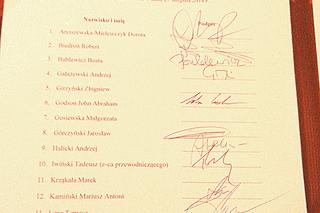 Nazwisko i imię
Podpis
1. Arciszewska-Mielewczyk Dorota
2. Biedroń Robert
3. Bublewicz Beata
4. Gałażewski Andrzej
5. Girzyński Zbigniew
6. Godson John Abraham
7. Gosiewska Małgorzata
8. Górczyński Jarosław
9. Halicki Andrzej
10. Iwiński Tadeusz (z-ca przewodniczącego)
11. Krząkała Marek
12. Kamiński Mariusz Antoni